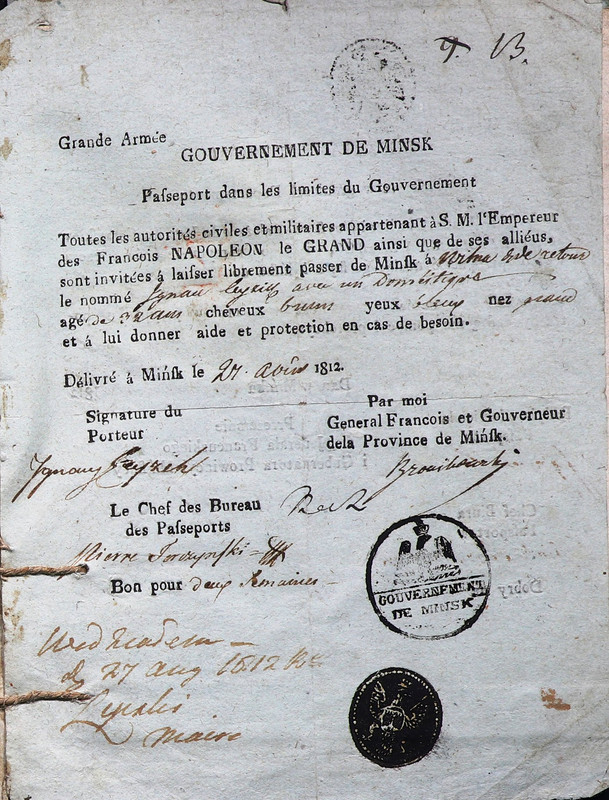 9. 13.
Grande Armée
GOUVERNEMENT DE MINSK
Paſseport dans les limites du Gouvernement
Toutes les autorités civiles et militaires appartenant à S. M. l'Empereur
des Francois NAPOLEON le GRAND ainsi que de ses alliéus,
sont invitées á laiſser librement passer de Minsk á
le nommé avec un Domestique
agé de 32 ans cheveux bruns yeux bleux nez grand
et á lui donner aide et protection en cas de besoin.
Délivré á Minſk le 27. août 1812.
Signature du
Porteur
Par moi
General Francois et Gouverneur
dela Province de Minſk.
Le Chef des Bureau
des Paſseports
Pierre
Bon pour deux Semaines
GOUVERNEMENT
DE MINSK
27 aug 1812
Maire